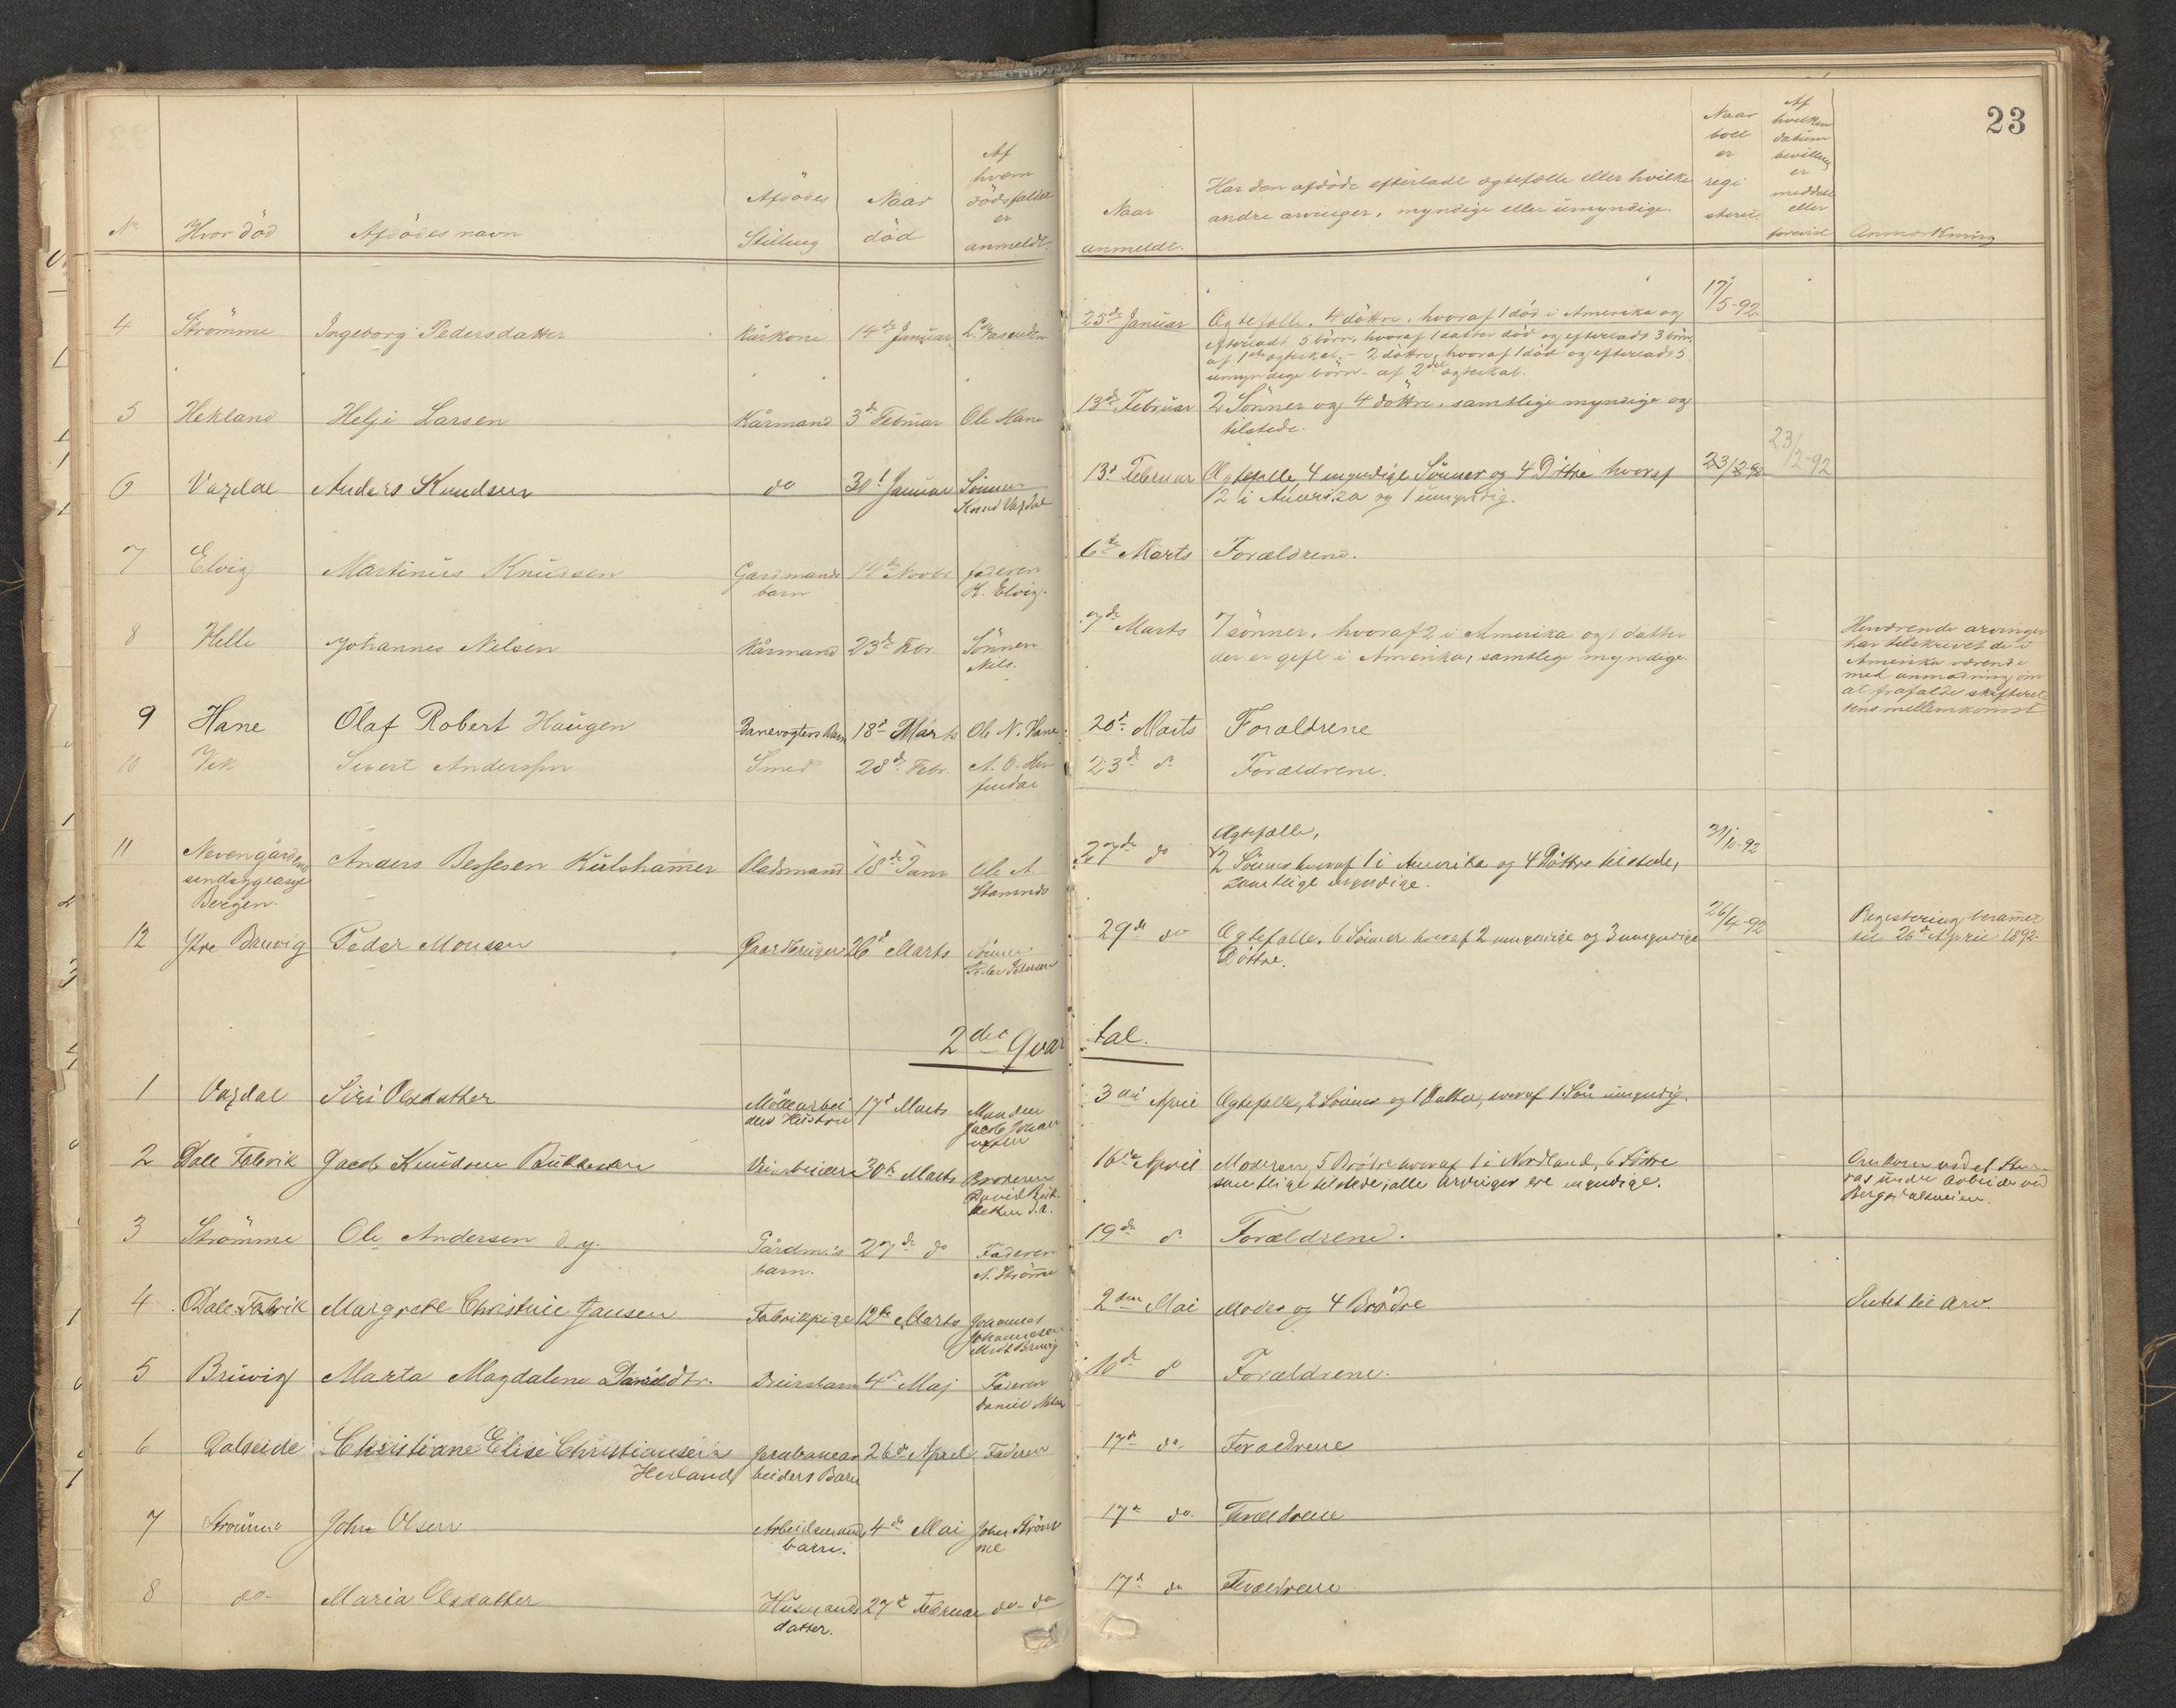 23
No Hvor död Afdödes navn Afdödes Stilling Naar död Af hvem dödsfaldet er anmeldt. Naar anmeldt. Har den afdöde efterladt ægtefælle eller hvilke andre arvinger, myndige eller umyndige. Naar boet er registreret Af hvilken datum bevilling er meddelt eller Anmærkning
4 Strömme Ingeborg Pedersdatter Kårkone 14de Januar 25de Januar Ægtefælle, 4 döttre, hvoraf 1 död i Amerika og 17/5-92
efterladt 5 börn, hvoraf 1 datter död og efterladt 3 börn
af 1ste ægteskab - 2 döttre, hvoraf 1 död og efterladt 5
umyndige börn - af 2det ægteskab.
5 Hekland Helje Larsen Kårmand 3de Februar Ole Hane 13de Februar 2 Sönner og 4 döttre, samtlige myndige og
tilstede.
6 Vaxdal Anders Knudsen do 30t Januar Sönnen 13d Februar Ægtefælle, 4 myndige Sönner og 4 Döttre hvoraf 23/2-92 23/2-92
Knud Vaxdal 2 i Amerika og 1 umyndig.
7 Elvig Martinus Knudsen Gardmands 14de Novbr faderen 6te Marts Forældrene.
barn K. Elvig.
8 Helle Johannes Nilsen Kårmand 23de Febr Sönnen 7de Marts 7 sönner, hvoraf 2 i Amerika og 1 datter Herværende arvinger
Nils. der er gift i Amerika, samtlige myndige har tilskrevet de i
Amerika værende
med anmodning om
at frafalde skifteret
tens mellemkomst
9 Hane Olaf Robert Haugen Banevogters Barn 18d Marts Ole N. Hane 20d Marts Forældrene
10 Vik Sivert Anderssen Smed 28de Febr. A. O. 23d do Forældrene.
11 Nevengårdens Anders Bersesen Kulshammer Pladsmand 18de Janr Ole A 27de do Ægtefælle, 31/10-92
sindsygeasyl Stamnes 2 Sönner hvoraf 1 i Amerika og 4 Döttre tilstede,
Bergen. samtlige myndige.
12 Ytre Bruvig Peder Monsen Gaardbruger 26d Marts Sönnen 29de do Ægtefælle, 6 Sönner hvoraf 2 umyndige og 3 umyndige 26/4-92 Registrering berammet
Döttre. til 26de April 1892.
2det Qvartal.
1 Vaxdal Siri Olsdatter Möllearbei 17d Marts Manden 3die April Ægtefælle, 2 Sönner og 1 Datter, hvoraf 1 Sön umyndig.
ders Hustru Jacob
2 Dale Fabrik Jacob Knudsen 30te Marts Broderen 16de April Moderen, 5 Brödre hvoraf 1 i Nordland, 6 Söstre Omkom ved et Sten-
David samtlige tilstede, alle Arvinger ere myndige. ras under Arbeide ved
Bergsdalsveien.
3 Strömme Ole Andersen d. y. Gårdm.s 27de do Faderen 19de do Forældrene.
barn. A. Strömme
4 Dale Fabrik Margrete Christine Jansen Fabrikpige 12te Marts Johannes 2den Mai Moder og 4 Brödre Intet til Arv.
Johannesen
Midt Bruvig
5 Bruvig Marta Magdalene Danieldtr. 4de Maj Faderen 10de do Forældrene.
Daniel
6 Dalseide Christiane Elise Christiansen Jernbanear 26de April Faderen 17de do Forældrene
Herland beiders Barn
7 Strömme John Olsen Arbeidsmands 4de Mai John Ström 17de do. Forældrene
barn. me
8 do. Maria Olsdatter Husmands 27de Februar do do 17d do Forældrene
datter.